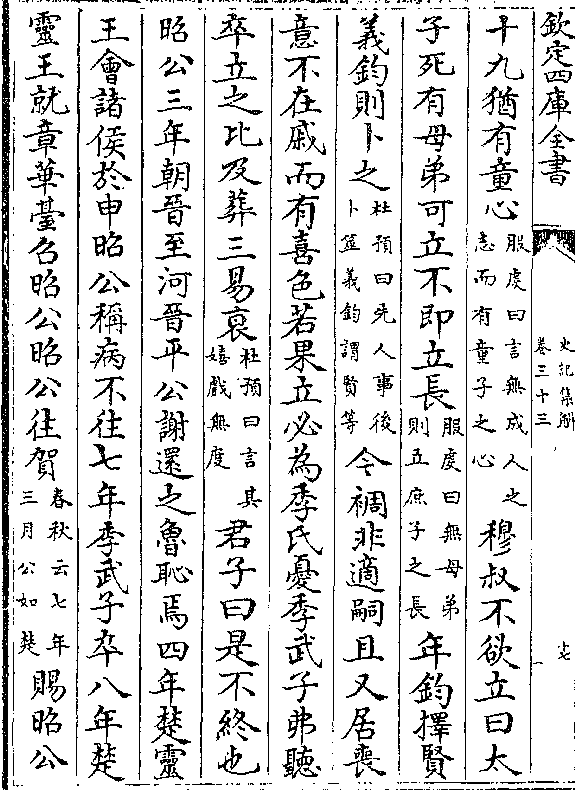 欽定四庫全書
史記集解
卷三十三
十九猶有童心服虔曰言無成人之志而有童子之心穆叔不欲立曰太
子死有母弟可立不即立長服虔曰無母弟則立庶子之長年鈞擇賢
義鈞則卜之杜預曰先人事後卜筮義鈞謂賢等今裯非適嗣且又居喪
意不在戚而有喜色若果立必為季氏憂季武子弗聽
卒立之比及葬三易衰杜預曰言其嬉戲無度君子曰是不終也
昭公三年朝晉至河晉平公謝還之魯恥焉四年楚靈
王會諸侯於申昭公稱病不往七年季武子卒八年楚
靈王就章華臺召昭公昭公往賀春秋云七年三月公如楚賜昭公